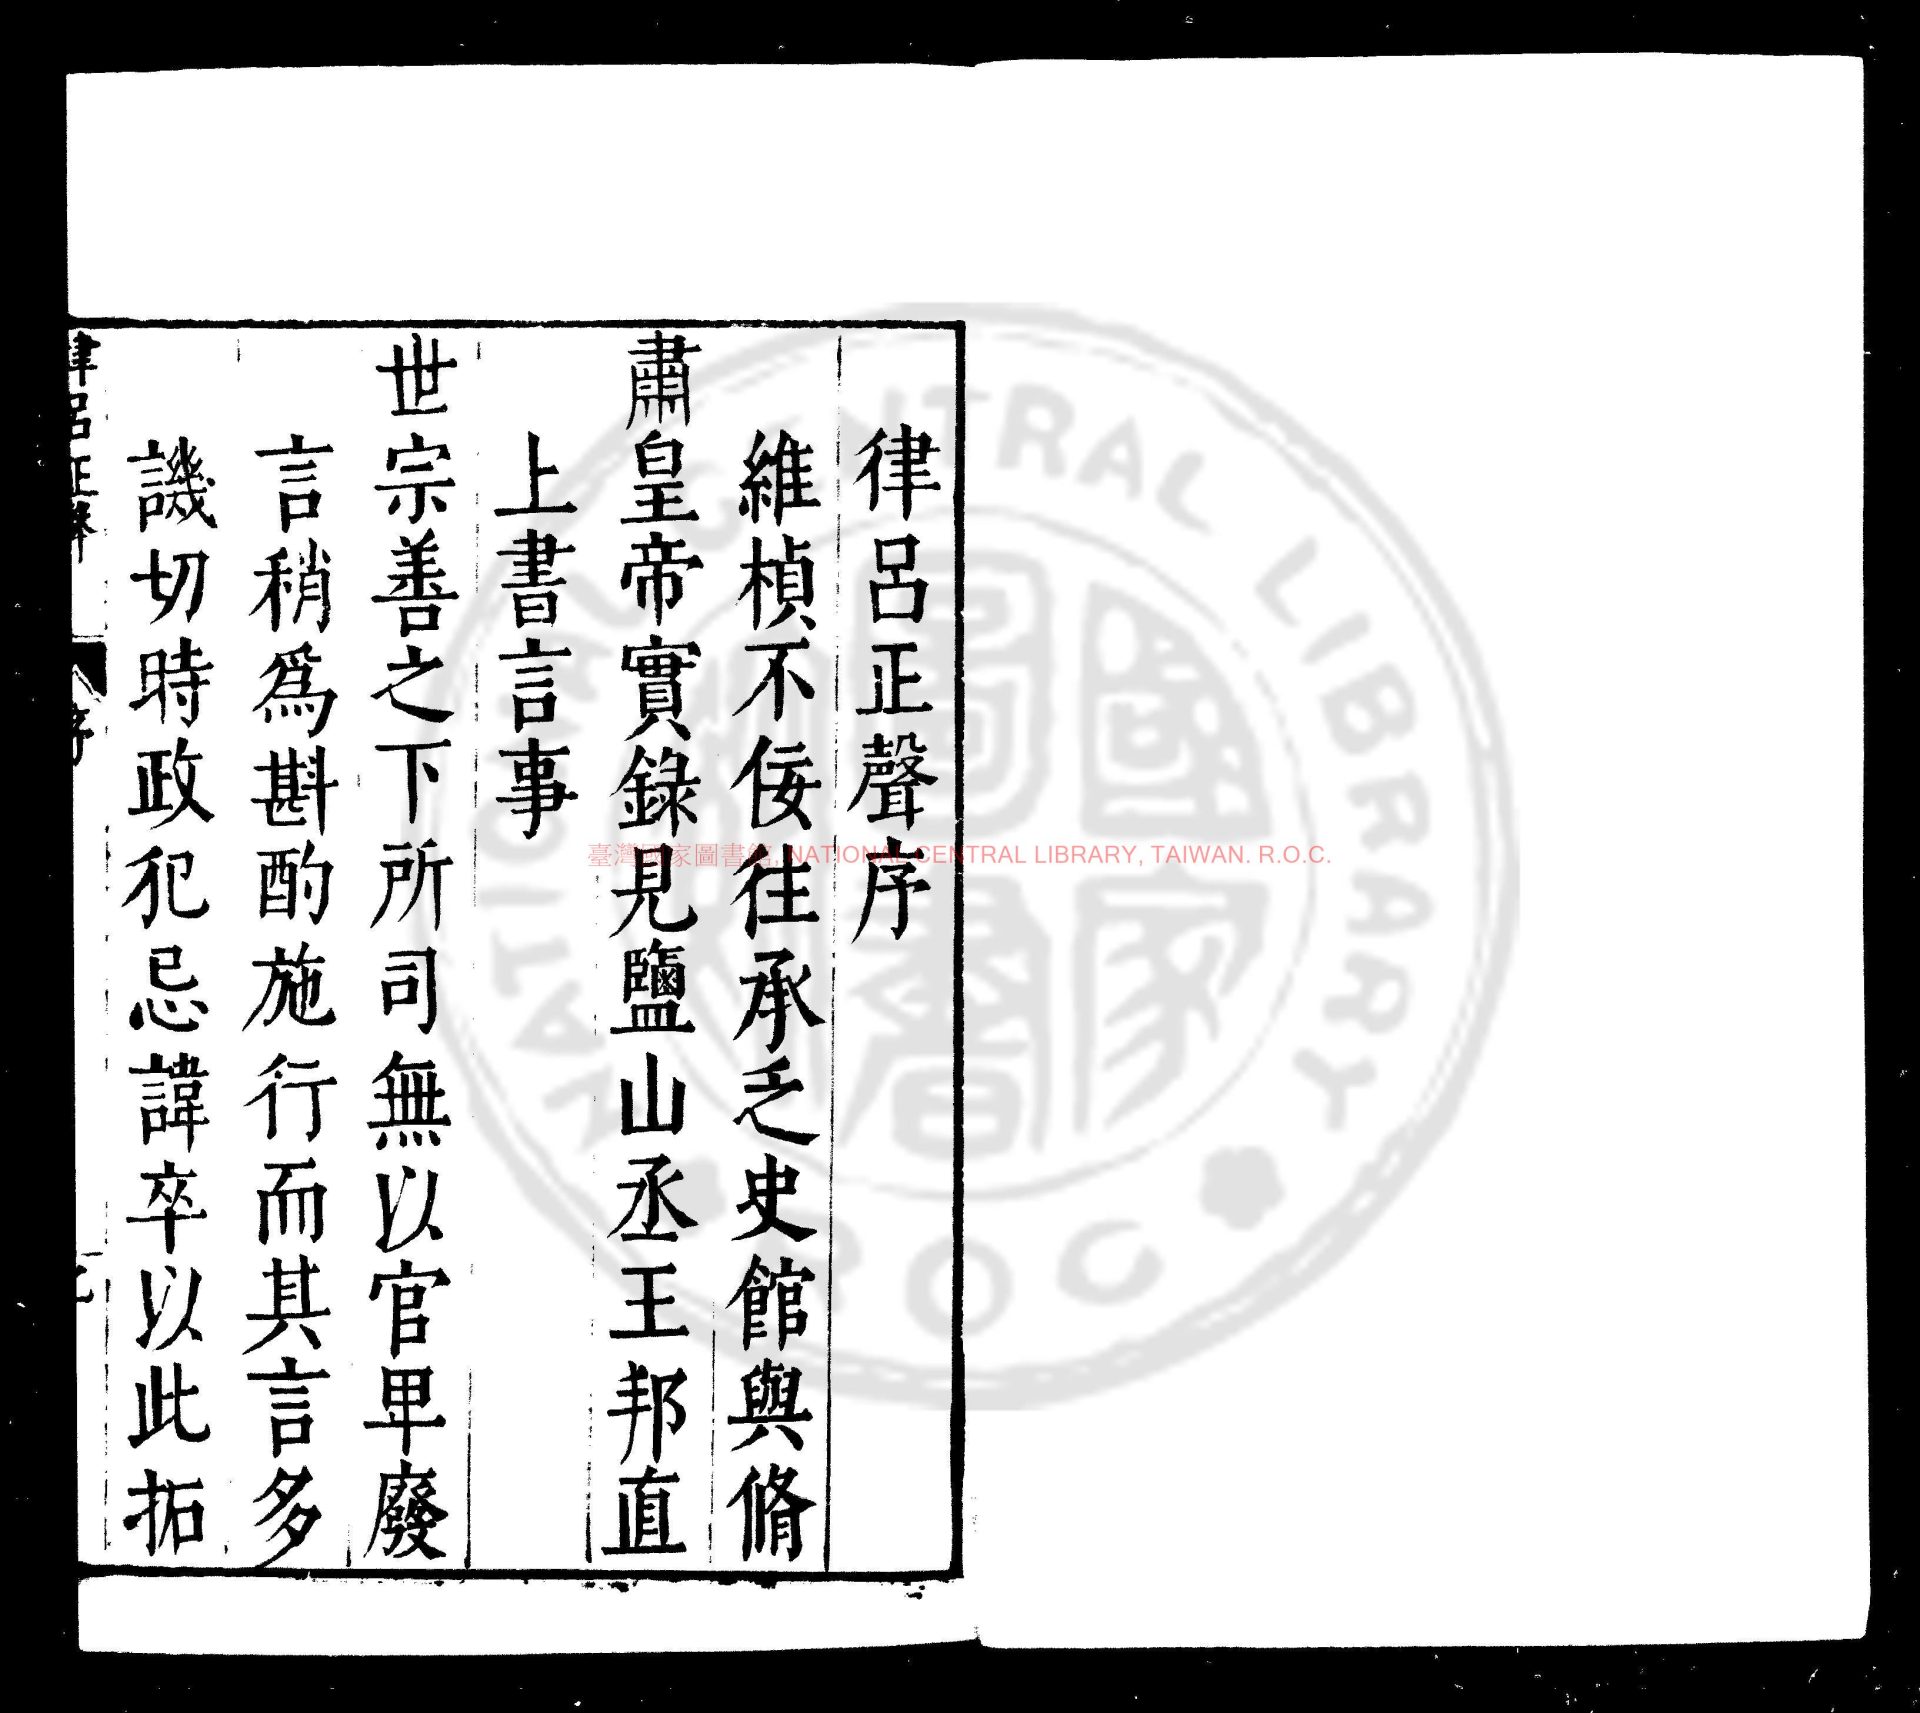 律呂正聲序
維楨不佞往承乏史館與脩
肅皇帝實錄見鹽山丞王邦直
上書言事
世宗善之下所司無以官卑廢
言稍爲斟酌施行而其言多
譏切時政犯忌諱卒以此拓
律呂正聲
序
臺灣國家圖書館, NATIONAL CENTRAL LIBRARY, TAIWAN. R.O.C.
NATIONAL CENTRAL LIBRARY
ROC
國家圖書館